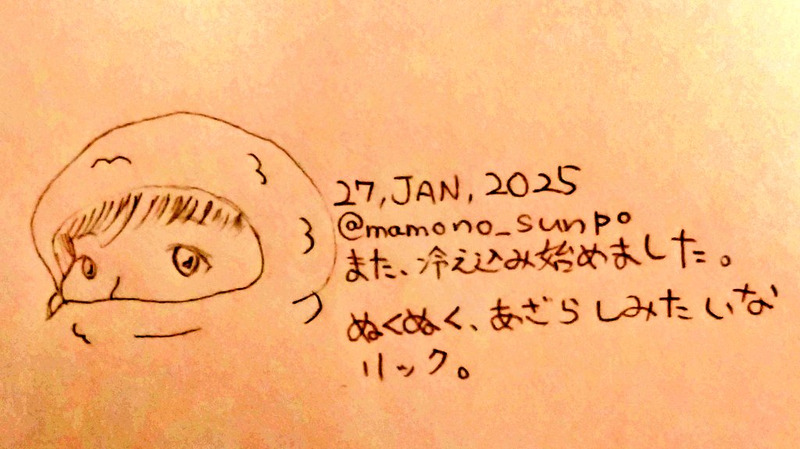 27, JAN, 2025
@mamono_sunpo
また、冷え込み始めました。
ぬくぬく、あざらしみたいな
リック。